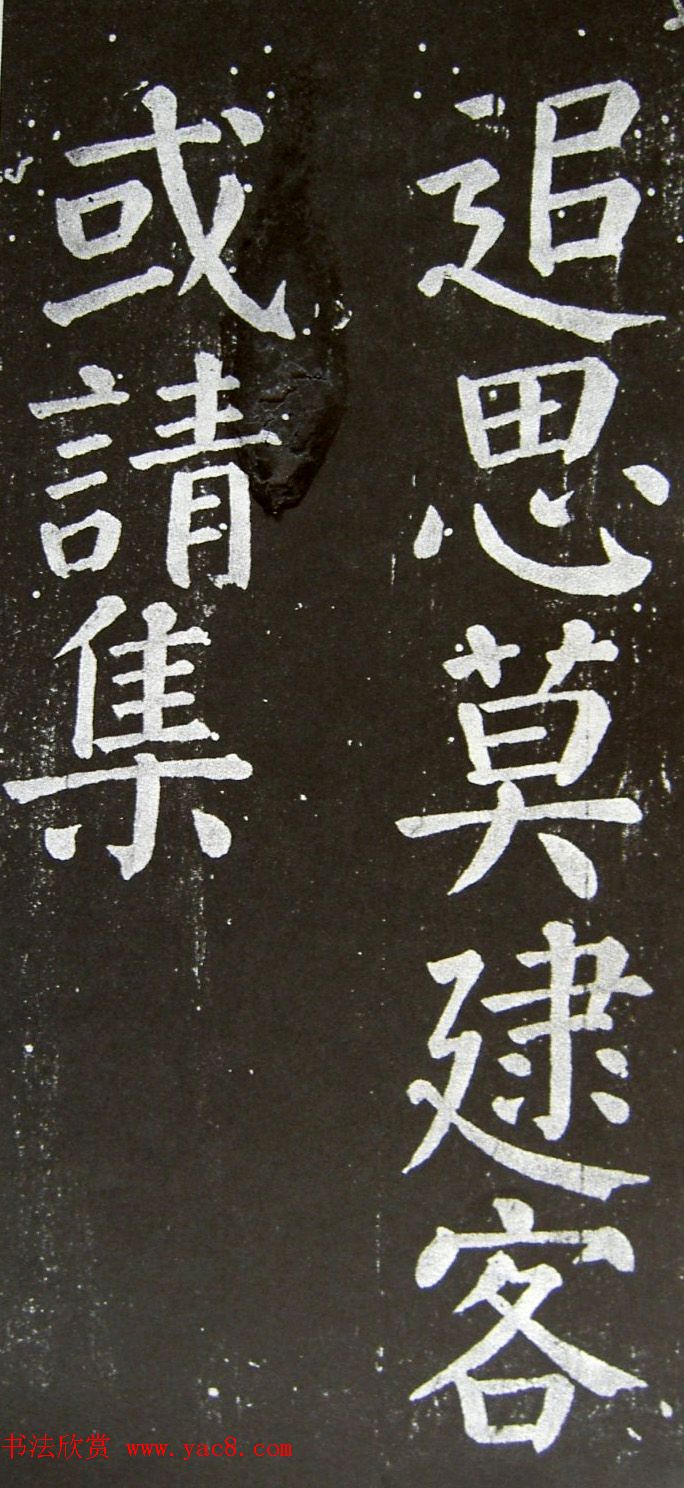 追思莫逮客
或請集
书法欣赏 www.yac8.com